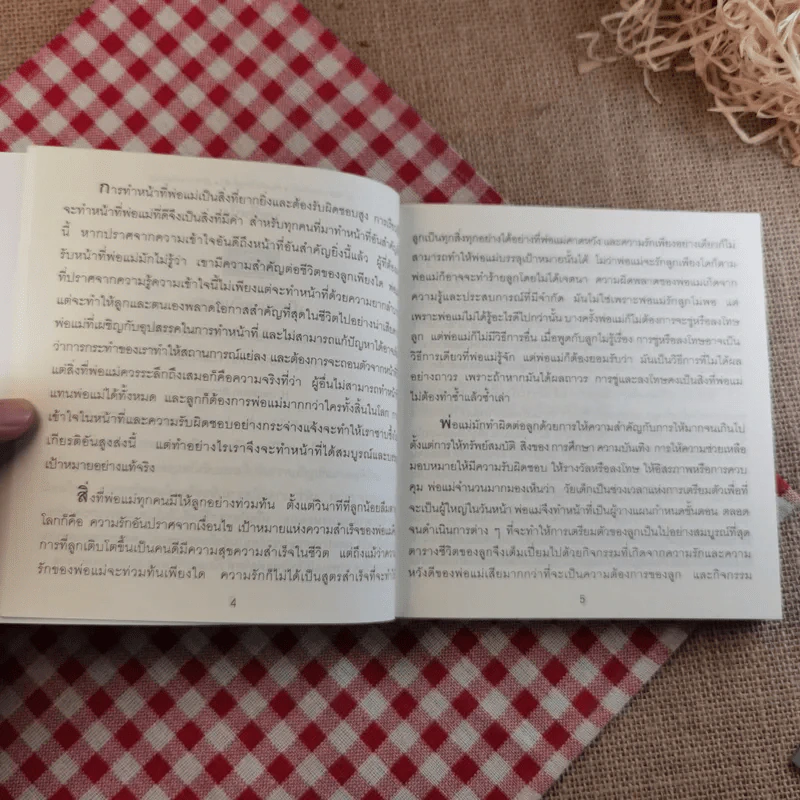 การทำหน้าที่พ่อแม่เป็นสิ่งที่ยากยิ่งและต้องรับผิดชอบสูง
จะทำหน้าที่พ่อแม่ที่ดีจึงเป็นสิ่งที่มีค่า สำหรับทุกคนที่มาทำหน้าที่อันสำคัญ
นี้ หากปราศจากความเข้าใจอันดีถึงหน้าที่อันสำคัญยิ่งนี้แล้ว
รับหน้าที่พ่อแม่มักไม่รู้ว่า เขามีความสำคัญต่อชีวิตของลูกเพียงใด
ที่ปราศจากความรู้ความเข้าใจนี้ไม่เพียงแต่จะทำหน้าที่ด้วยความยากลำบาก
แต่จะทำให้ลูกและตนเองพลาดโอกาสสำคัญที่สุดในชีวิตไปอย่างน่าเสีย
พ่อแม่ที่เผชิญกับอุปสรรคในการทำหน้าที่ และไม่สามารถแก้ปัญหาได้
ว่าการกระทำของเราทำให้สถานการณ์แย่ลง และต้องการจะถอนตัวจากหน้า
แต่สิ่งที่พ่อแม่ควรระลึกถึงเสมอก็คือความจริงที่ว่า ผู้อื่นไม่สามารถทำหน้า
แทนพ่อแม่ได้ทั้งหมด และลูกก็ต้องการพ่อแม่มากกว่าใครทั้งสิ้นในโลก
เข้าใจในหน้าที่และความรับผิดชอบอย่างกระจ่างแจ้งจะทำให้เราซาบซึ้ง
เกียรติอันสูงส่งนี้ แต่ทำอย่างไรเราจึงจะทำหน้าที่ได้สมบูรณ์และ
เป้าหมายอย่างแท้จริง
สิ่งที่พ่อแม่ทุกคนมีให้ลูกอย่างท่วมท้น ตั้งแต่วินาทีที่ลูกน้อยลืมตา
โลกก็คือ ความรักอันปราศจากเงื่อนไข เป้าหมายแห่งความสำเร็จของพ่อแม่
การที่ลูกเติบโตขึ้นเป็นคนดีมีความสุขความสำเร็จในชีวิต แต่ถึงแม้ว่า
รักของพ่อแม่จะท่วมท้นเพียงใด ความรักก็ไม่ได้เป็นสูตรสำเร็จที่จะทำ
4
ลูกเป็นทุกสิ่งทุกอย่างได้อย่างที่พ่อแม่คาดหวัง และความรักเพียงอย่างเดียวก็ไม่
สามารถทำให้พ่อแม่บรรลุเป้าหมายนั้นได้ ไม่ว่าพ่อแม่จะรักลูกเพียงใดก็ตาม
พ่อแม่ก็อาจจะทำร้ายลูกโดยไม่ได้เจตนา ความผิดพลาดของพ่อแม่เกิดจาก
ความรู้และประสบการณ์ที่มีจำกัด มันไม่ใช่เพราะพ่อแม่รักลูกไม่พอ แต่
เพราะพ่อแม่ไม่ได้รู้อะไรดีไปกว่านั้น บางครั้งพ่อแม่ก็ไม่ต้องการจะขู่หรือลงโทษ
ลูก แต่พ่อแม่ก็ไม่มีวิธีการอื่น เมื่อพูดกับลูกไม่รู้เรื่อง การขู่หรือลงโทษอาจเป็น
วิธีการเดียวที่พ่อแม่รู้จัก แต่พ่อแม่ก็ต้องยอมรับว่า มันเป็นวิธีการที่ไม่ได้ผล
อย่างถาวร เพราะถ้าหากมันได้ผลถาวร การขู่และลงโทษคงเป็นสิ่งที่พ่อแม่
ไม่ต้องทำซ้ำแล้วซ้ำเล่า
พ่อแม่มักทำผิดต่อลูกด้วยการให้ความสำคัญกับการให้มากจนเกินไป
ตั้งแต่การให้ทรัพย์สมบัติ สิ่งของ การศึกษา ความบันเทิง การให้ความช่วยเหลือ
มอบหมายให้มีความรับผิดชอบ ให้รางวัลหรือลงโทษ ให้อิสรภาพหรือการควบ
คุม พ่อแม่จำนวนมากมองเห็นว่า วัยเด็กเป็นช่วงเวลาแห่งการเตรียมตัวเพื่อที่
จะเป็นผู้ใหญ่ในวันหน้า พ่อแม่จึงทำหน้าที่เป็นผู้วางแผนกำหนดขั้นตอน ตลอด
จนดำเนินการต่าง ๆ ที่จะทำให้การเตรียมตัวของลูกเป็นไปอย่างสมบูรณ์ที่สุด
ตารางชีวิตของลูกจึงเต็มเปี่ยมไปด้วยกิจกรรมที่เกิดจากความรักและความ
หวังดีของพ่อแม่เสียมากกว่าที่จะเป็นความต้องการของลูก และกิจกรรม
5